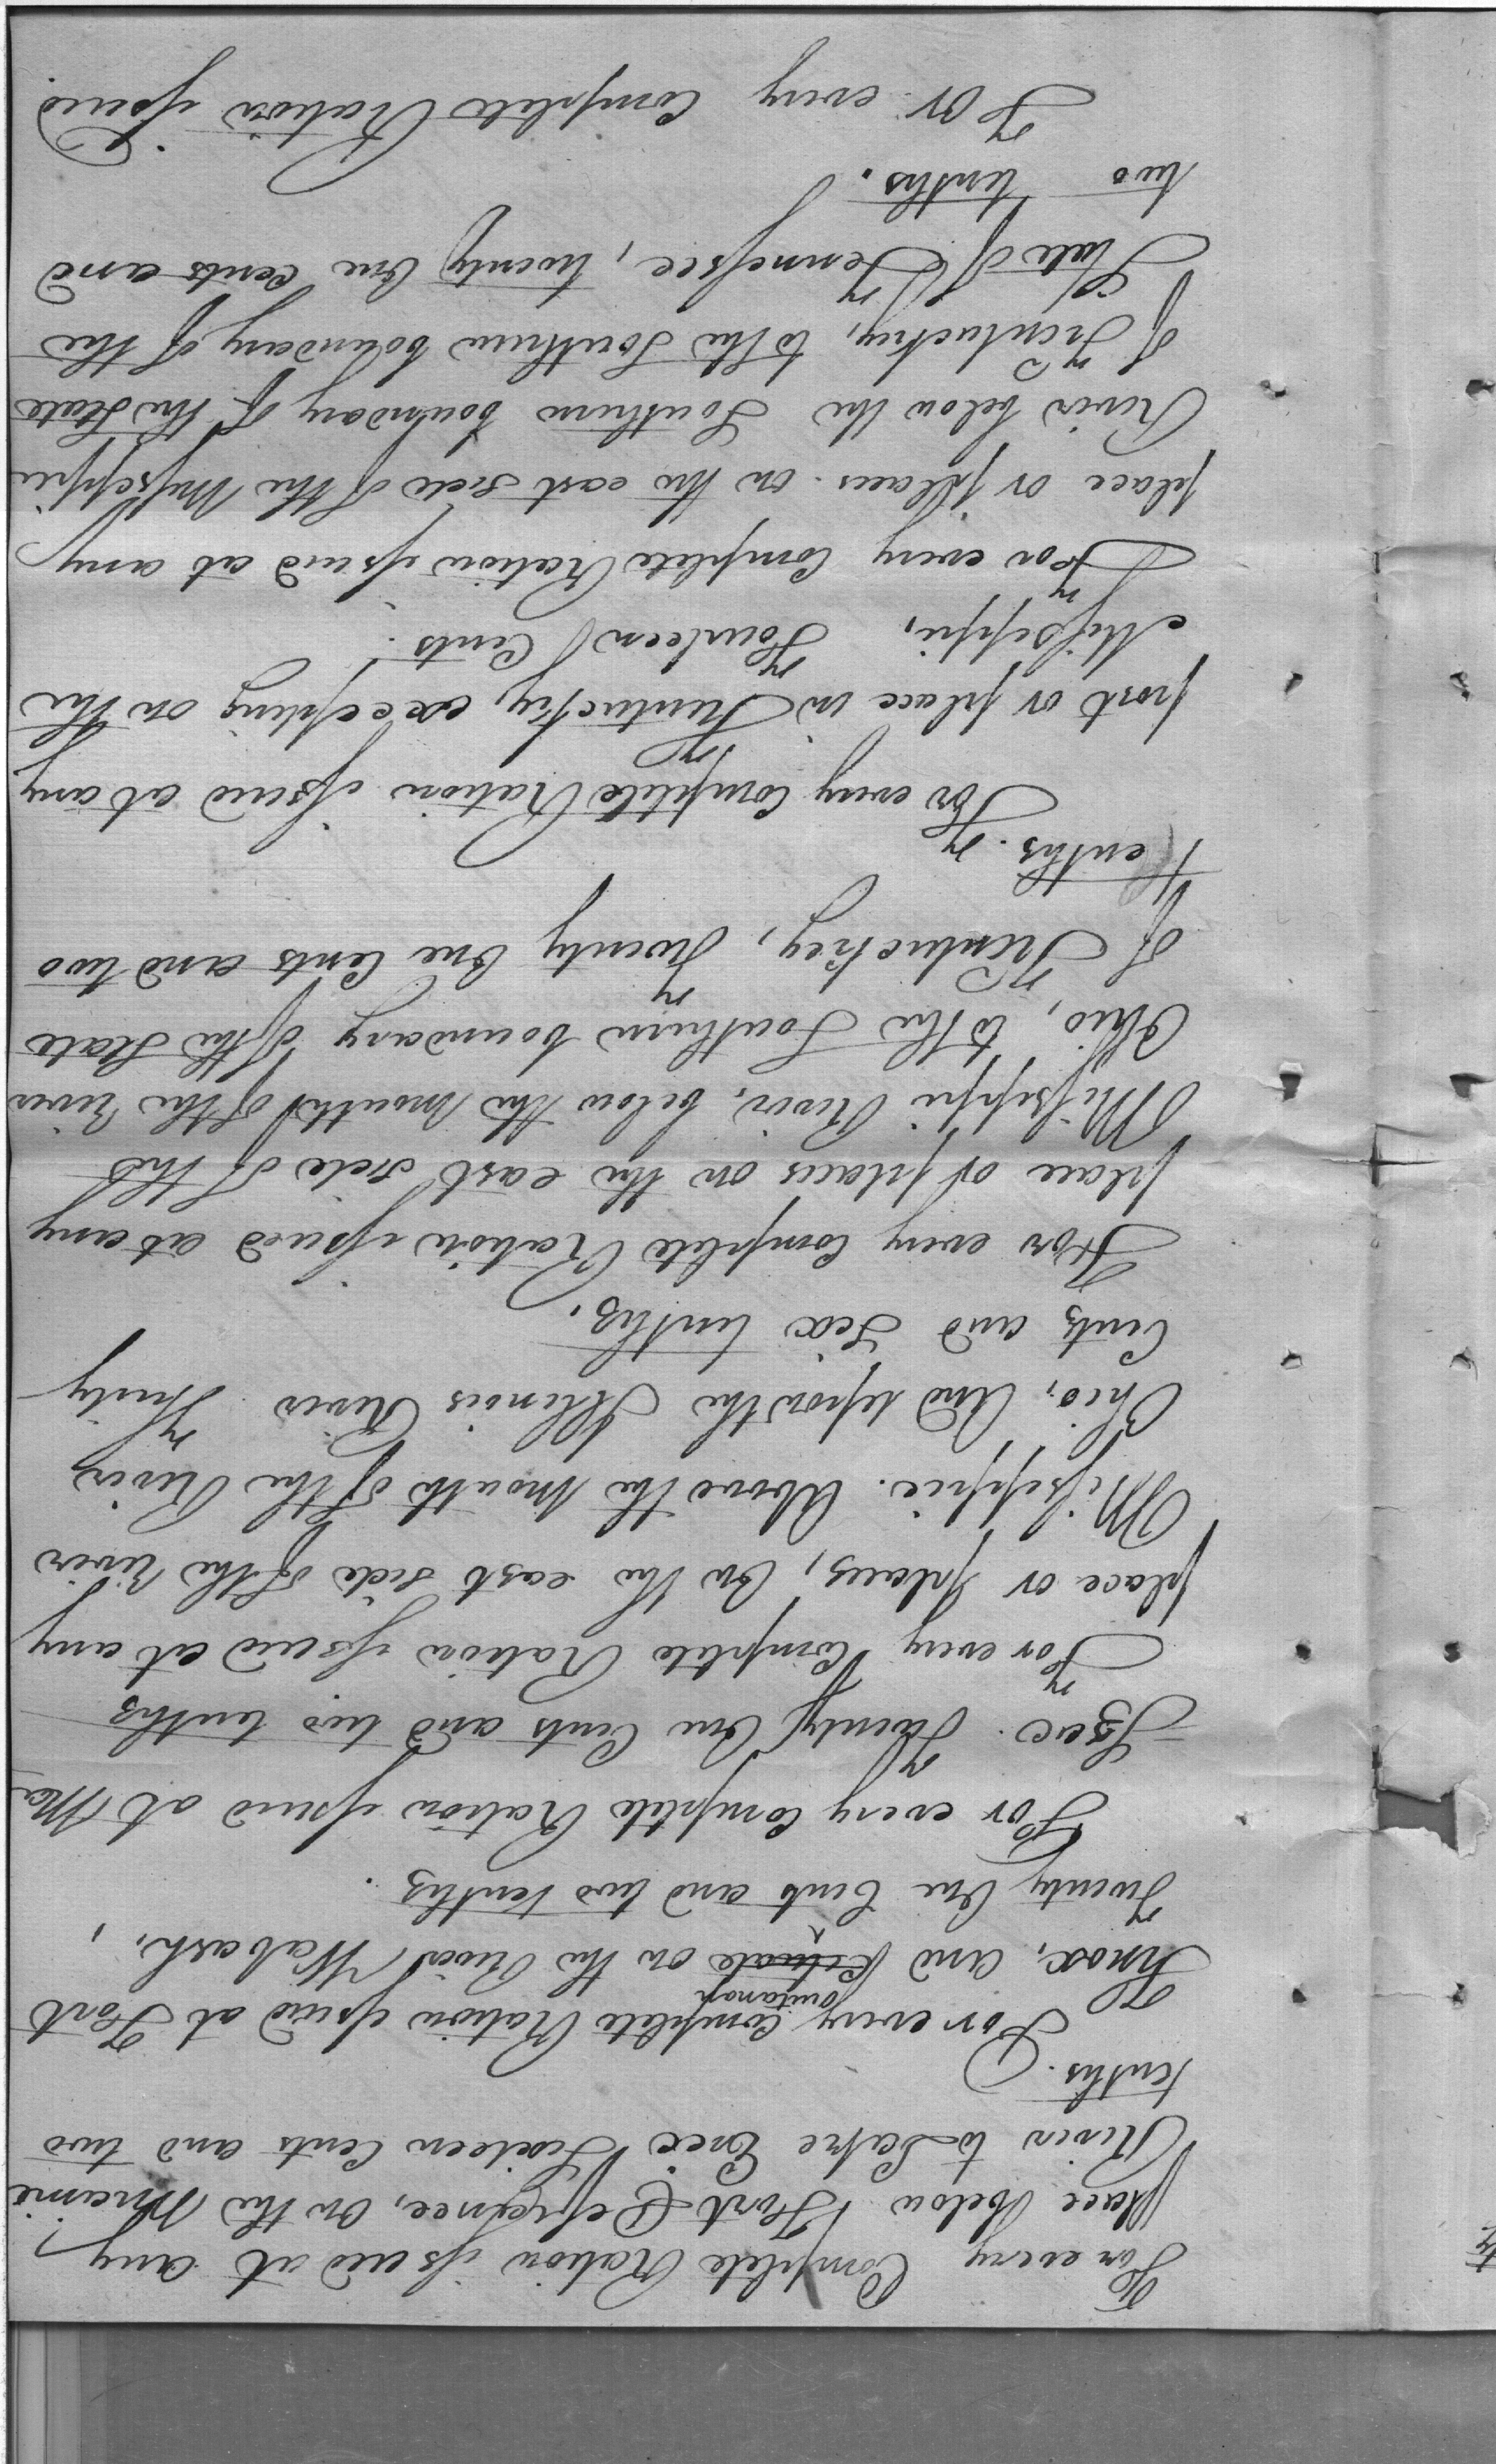 For every Complete Ration issued at any
place below Fort Defiance, on the Miami
River to Lake Erie Sixteen Cents and two
tenths.
For every Complete Ration issued at Fort
Knox, and ouitanan on the River Wabash,
Twenty One Cents and two tenths.
For every Complete Ration issued at Ma
Isac. Twenty One Cents and two tenths
For every Complete Ration issued at any
place or places, On the east side of the River
Missippie. Above the mouth of the River
Ohio, And up to the Illinois River Thirty
Cents and Six tenths.
For every Complete Ration issued at any
place or places on the east side of the
Missippi River, below the mouth of the River
Ohio, to the Southern boundary of the State
of Kentuckey, Twenty One Cents and two
tenths.
For every Complete Ration issued at any
post or place in Kentucky, excepting on the
Missippi, Fourteen Cents.
For every Complete Ration issued at any
place or places on the east side of the Misseppi
River below the Southern boundary of the State
of Kentucky, to the Southern boundary of the
State of Tennessee, twenty One Cents and
two tenths.
For every Complete Ration issued